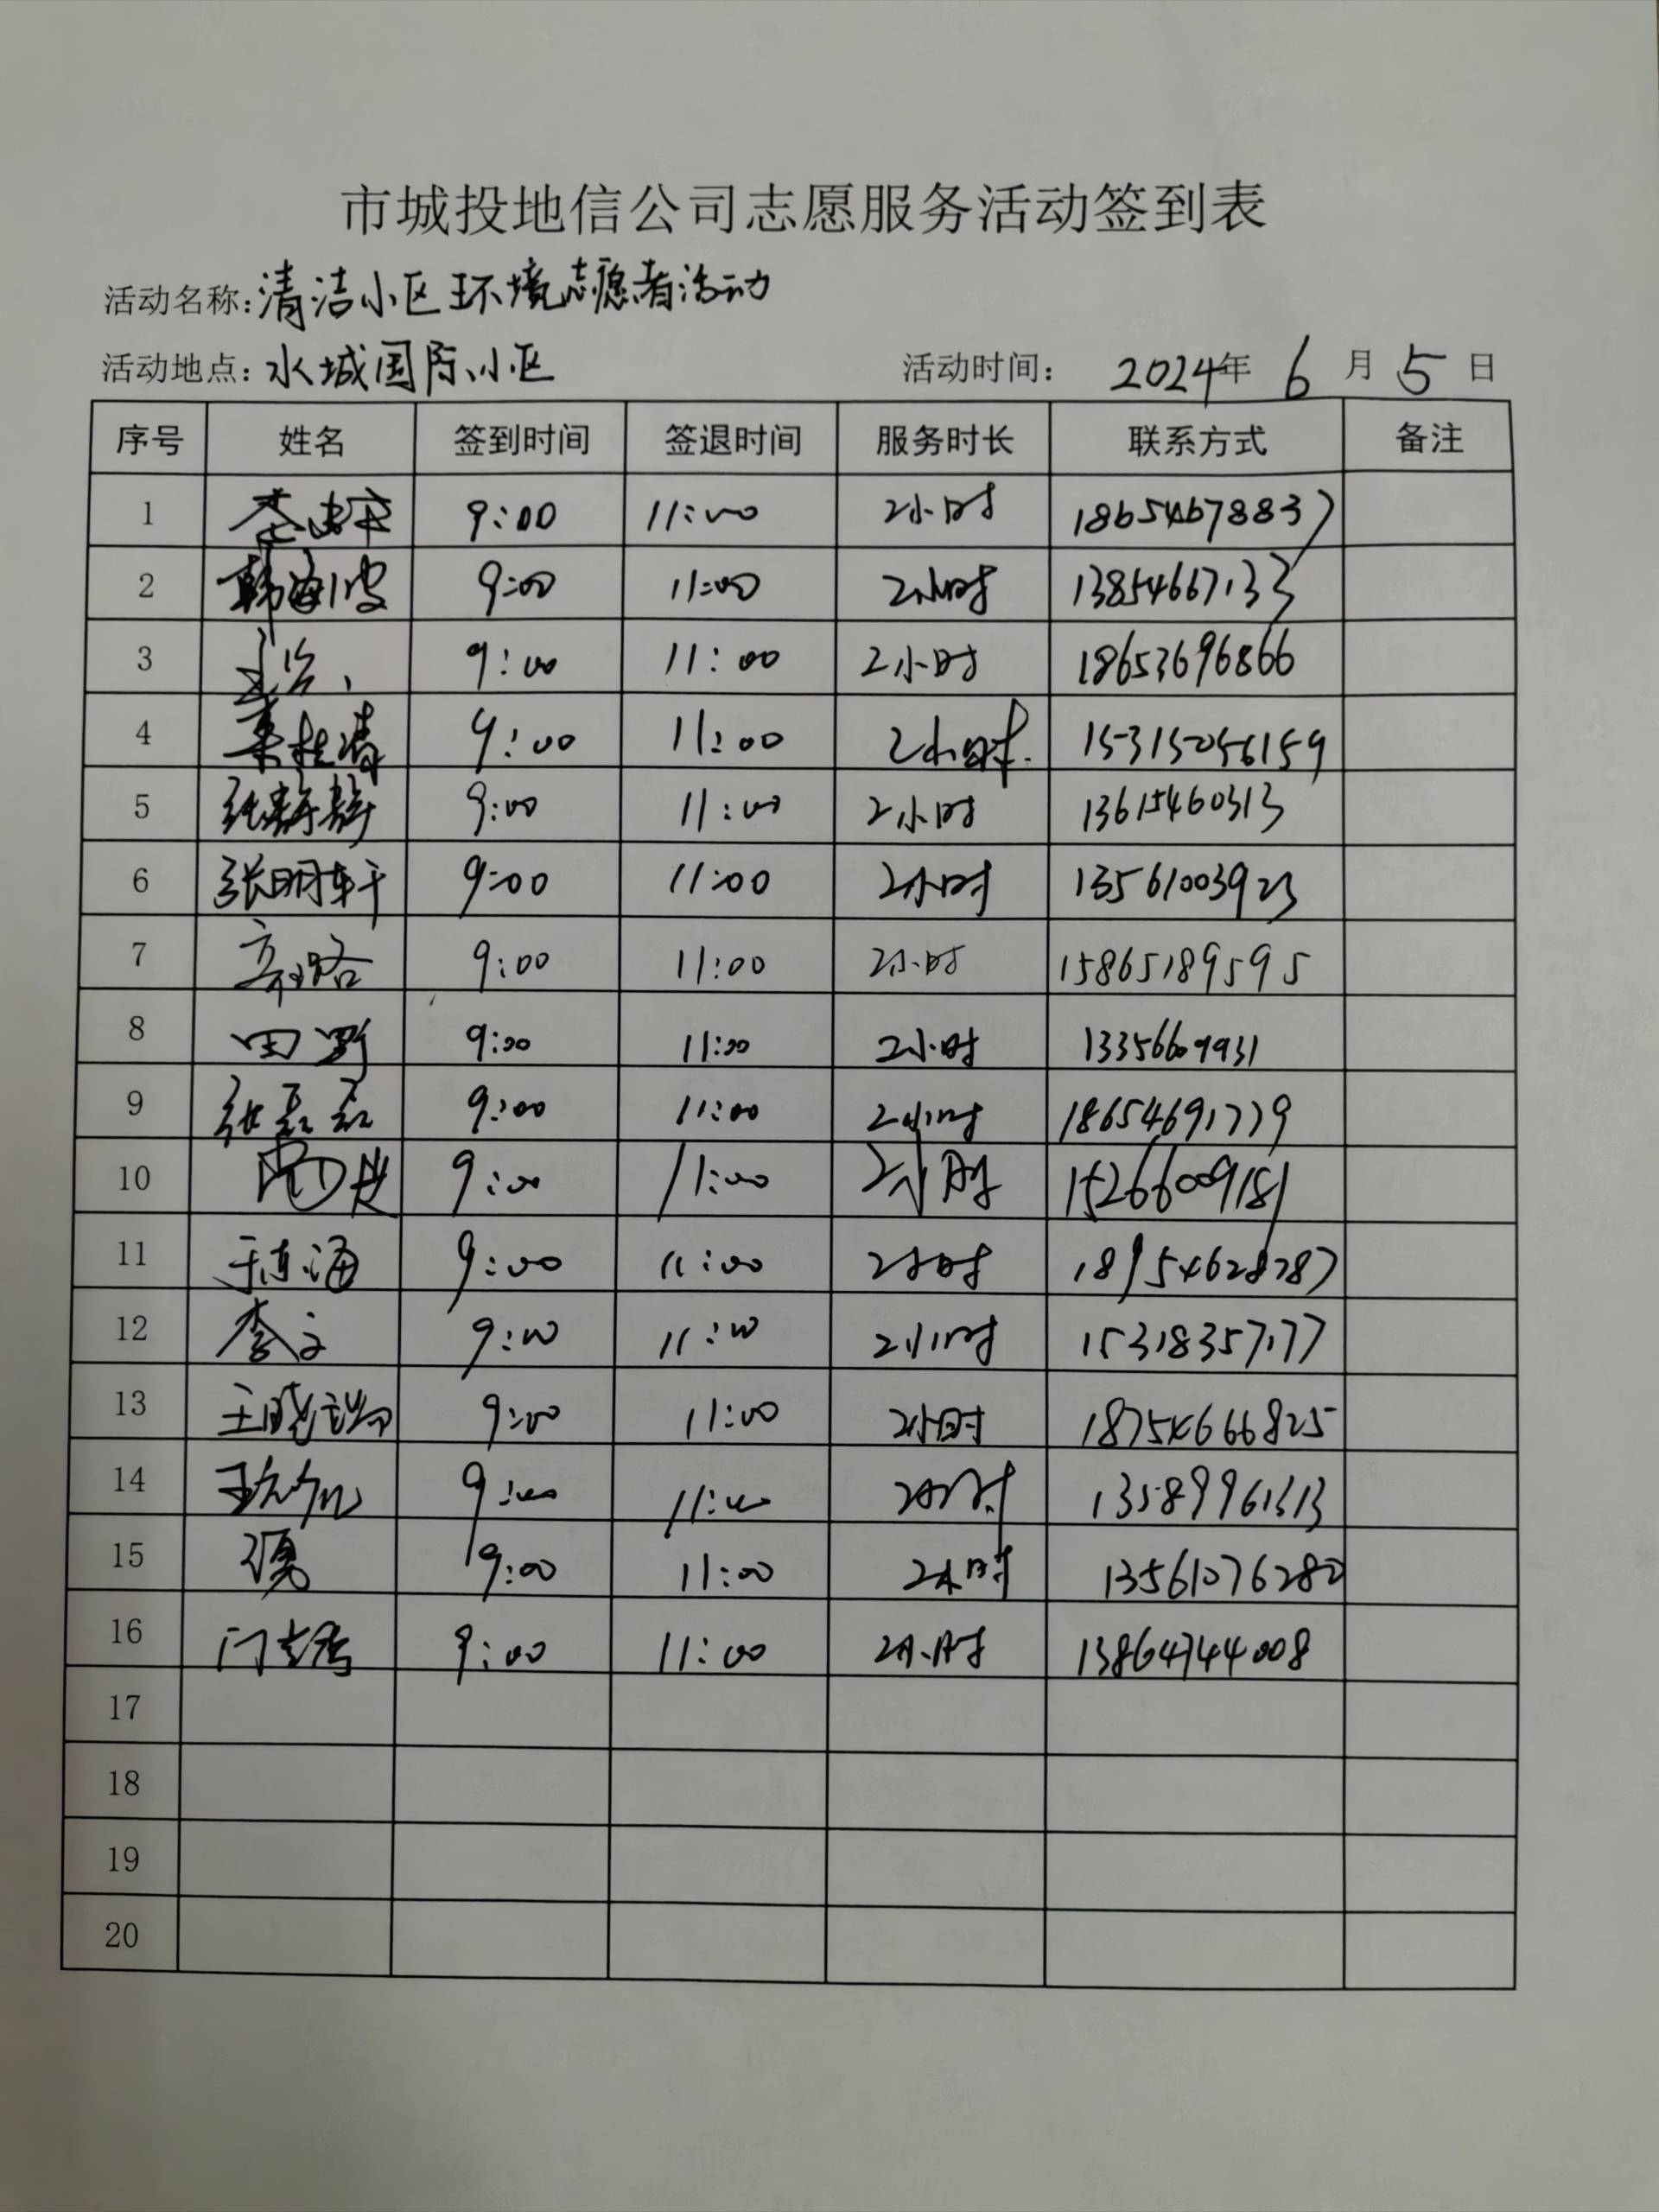 市城投地信公司志愿服务活动签到表
活动名称:清洁小区环境志愿者活动
活动地点:水城国际小区 活动时间: 2024年 6 月 5 日
序号 姓名 签到时间 签退时间 服务时长 联系方式 备注
1 9:00 11:00 2小时 18654678837
2 韩海波 9:00 11:00 2小时 13854667133
3 9:00 11:00 2小时 18653696866
4 9:00 11:00 2小时. 15315056159
5 张静静 9:00 11:00 2小时 13615460313
6 张明轩 9:00 11:00 2小时 13561003923
7 9:00 11:00 2小时 15865189595
8 田野 9:00 11:00 2小时 13356609931
9 张磊磊 9:00 11:00 2小时 18654691779
10 9:00 11:00 2小时 15266009181
11 9:00 11:00 2小时 18954628787
12 李文 9:00 11:00 2小时 15318357177
13 9:00 11:00 2小时 18754666825
14 9:00 11:00 2小时 13589961313
15 9:00 11:00 2小时 13561076280
16 9:00 11:00 2小时 13864744008
17
18
19
20